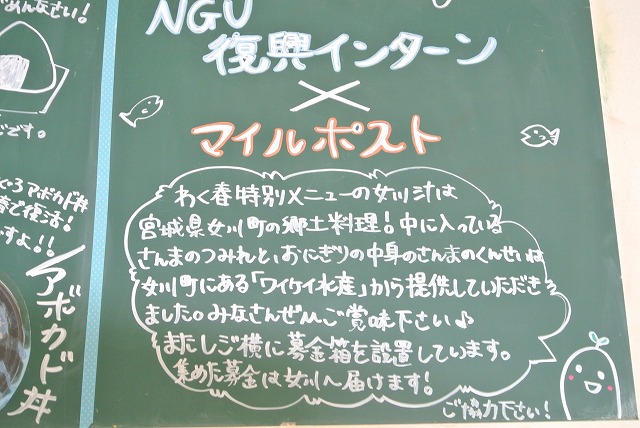 めんなさい!
です。
ぐろアボカド丼
で復活!
すよ!!
アボカド丼
NGU
復興インターン
×
マイルポスト
わく春特別メニューの女川汁は
宮城県女川町の郷土料理!中に入っている
さんまのつみれと、おにぎりの中身のさんまのくんせいは
女川町にある「ワイケイ水産」から提供していただき
ました。みなさんぜひご賞味下さい♪
またレジ横に募金箱を設置しています。
集めた募金は女川へ届けます!
ご協力下さい!